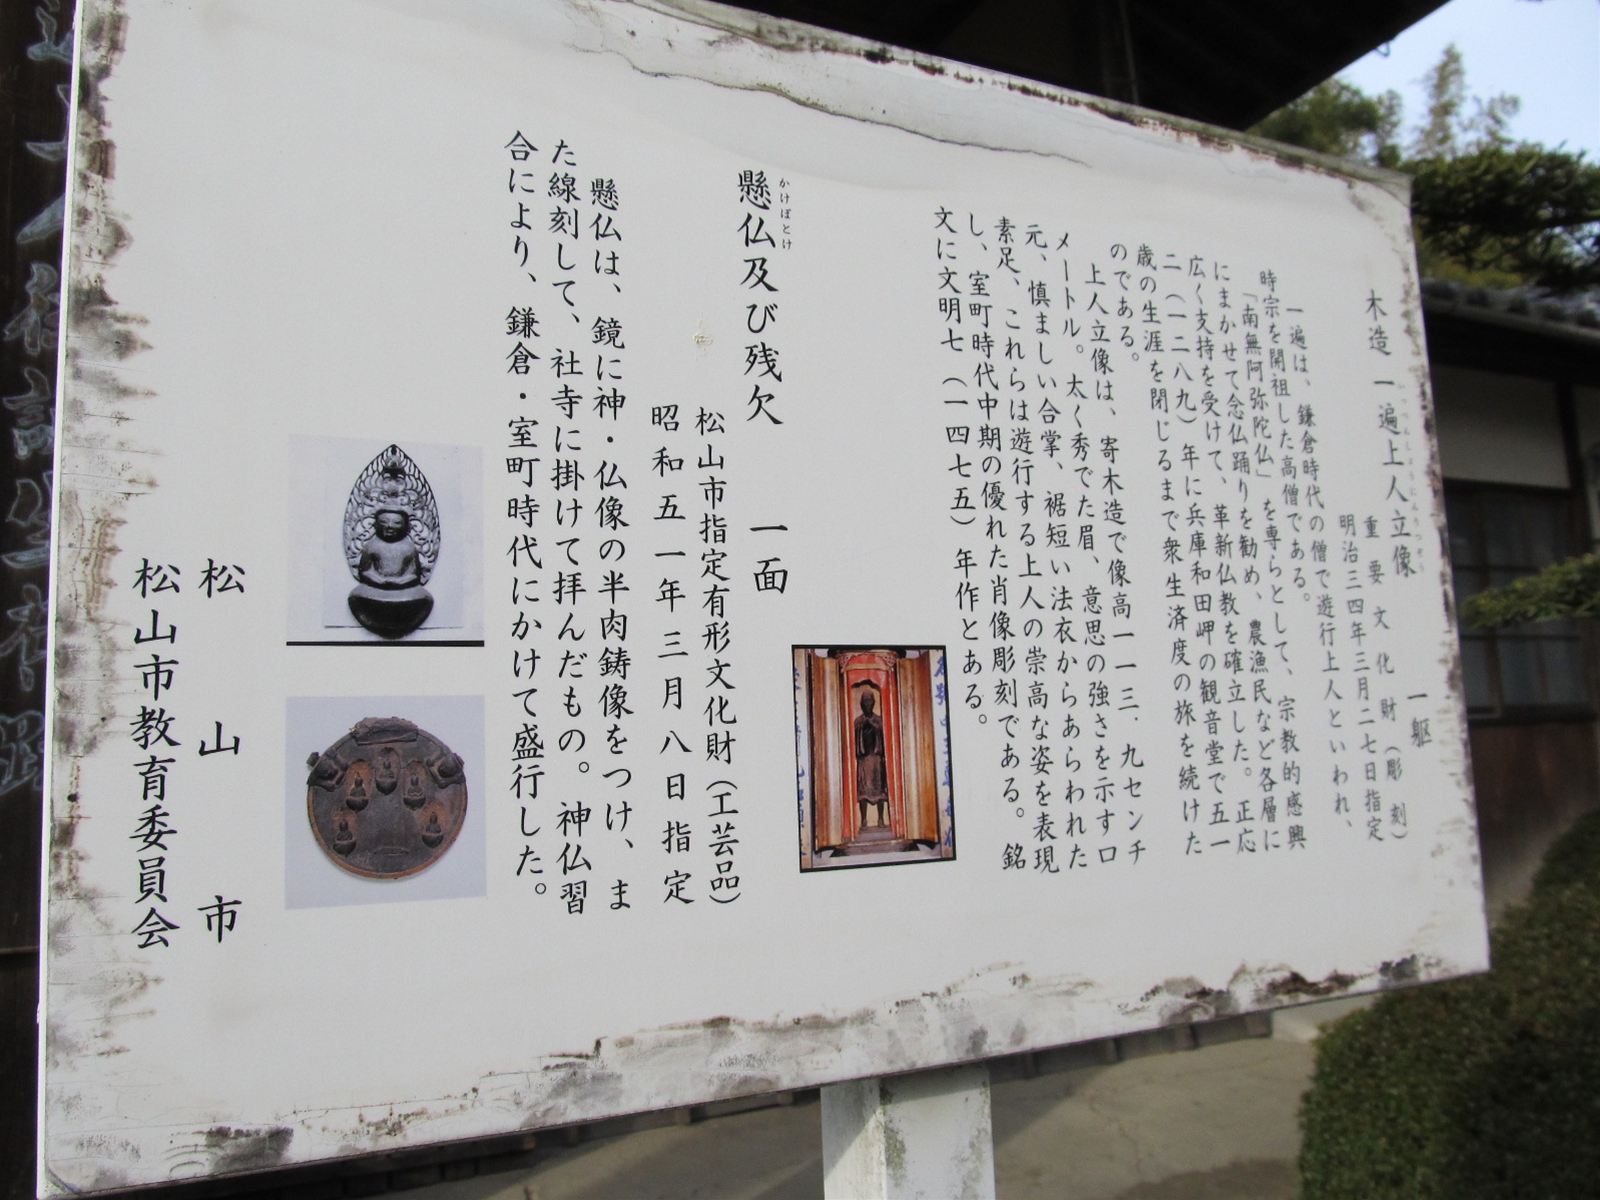 木造 一遍上人立像 一軀
重要文化財（彫刻）
明治三四年三月二七日指定
一遍は、鎌倉時代の僧で遊行上人といわれ、
時宗を開祖した高僧である。
「南無阿弥陀仏」を専らとして、宗教的感興
にまかせて念仏踊りを勧め、農漁民など各層に
広く支持を受けて、革新仏教を確立した。正応
二（一二八九）年に兵庫和田岬の観音堂で五一
歳の生涯を閉じるまで衆生済度の旅を続けた
のである。
上人立像は、寄木造で像高一一三．九センチ
メートル。太く秀でた眉、意思の強さを示す口
元、慎ましい合掌、裾短い法衣からあらわれた
素足、これらは遊行する上人の崇高な姿を表現
し、室町時代中期の優れた肖像彫刻である。銘
文に文明七（一四七五）年作とある。
かけぼとけ
懸仏及び残欠 一面
松山市指定有形文化財（工芸品）
昭和五一年三月八日指定
懸仏は、鏡に神・仏像の半肉鋳像をつけ、ま
た線刻して、社寺に掛けて拝んだもの。神仏習
合により、鎌倉・室町時代にかけて盛行した。
松山市
松山市教育委員会